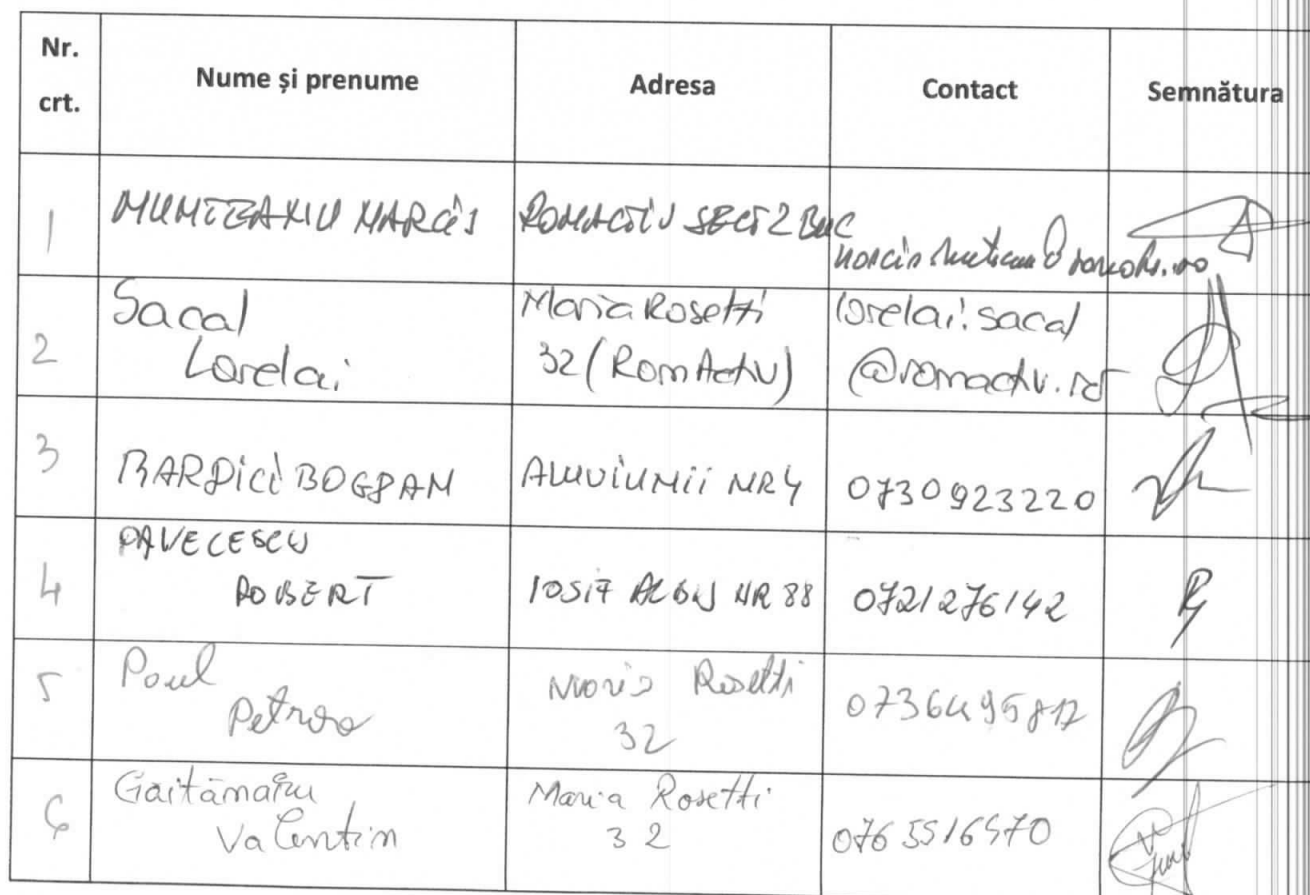 Nr.
crt.
Nume și prenume
Adresa
Contact
Semnătura
1
MUNTEANU NARCIS
ROMACTIV SECT 2 BUC
2
Sacal
Lorelai
Maria Rosetti
32 (RomActiv)
lorelai.sacal
@romactiv.ro
3
BARDICI BOGDAN
ALUVIUNII NR 4
0730923220
4
PAVELESCU
ROBERT
IOSIF ALBU NR 88
0721276142
5
Paul
Petrov
Maria Rosetti
32
6
Găitănaru
Valentin
Maria Rosetti
32